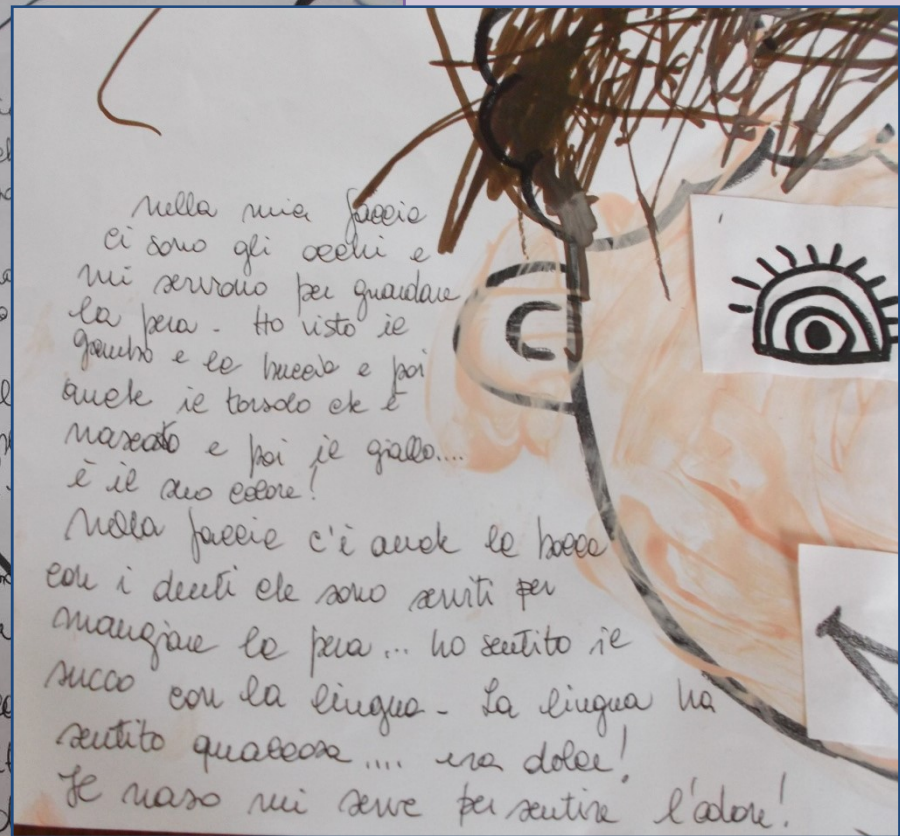 Nella mia faccia
ci sono gli occhi e
mi servono per guardare
la pera - Ho visto il
gambo e la buccia e poi
anche il torsolo che è
nascosto e poi il giallo....
è il suo colore!
Nella faccia c'è anche la bocca
con i denti che sono serviti per
mangiare la pera... ho sentito il
succo con la lingua - La lingua ha
sentito qualcosa .... era dolce!
Il naso mi serve per sentire l'odore!